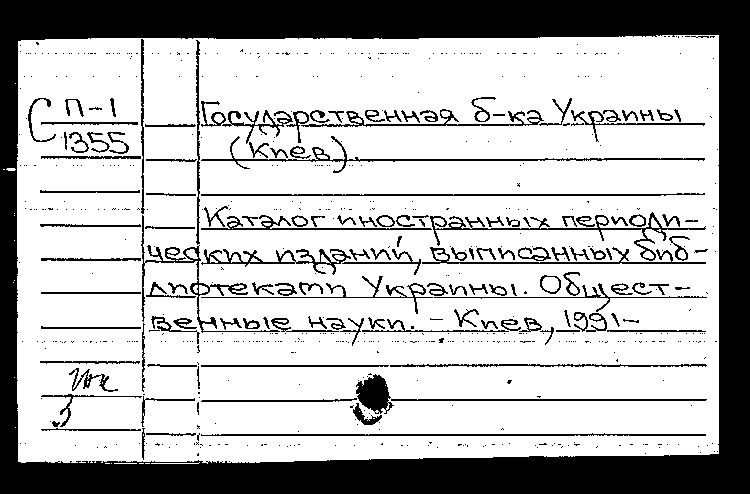 С П-1
1355
Государственная б-ка Украины
(Киев).
Каталог иностранных периоди-
ческих изданий, выписанных биб-
лиотеками Украины. Общест-
венные науки. - Киев, 1991-
3